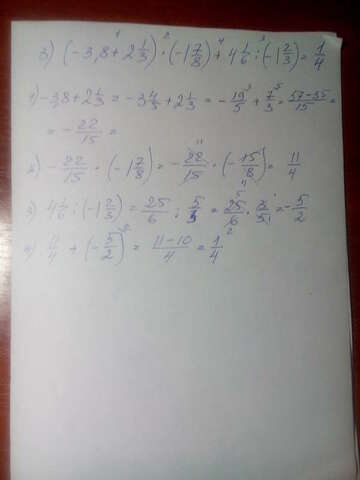 3) (-3,8+2 1/3) · (-1 7/8) + 4 1/6 : (-1 2/3) = 1/4
1) -3,8+2 1/3 = -3 4/5 + 2 1/3 = -19/5 + 7/3 = 57-35/15 =
= -22/15 =
2) -22/15 · (-1 7/8) = -22/15 · (-15/8) = 11/4
3) 4 1/6 : (-1 2/3) = 25/6 : 5/3 = 25/6 · 3/5 = -5/2
4) 11/4 + (-5/2) = 11-10/4 = 1/4